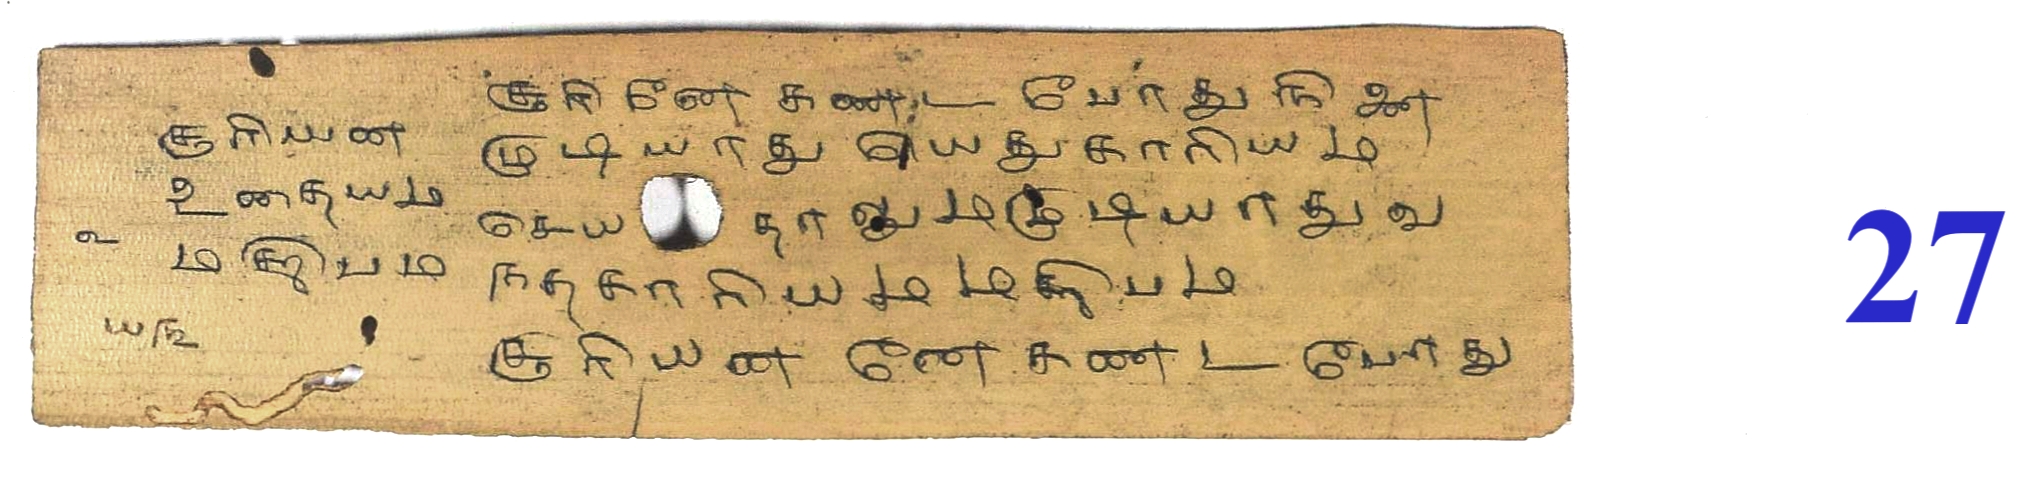 சூரியன
உதையம
௨
மத்திபம
ய௫
சூரினே கணட போது நினை
முடியாது யெது காரியம
செய தாலுமமுடியாது வ
நத காரியமமத்திபம
சூரியன னே கணட போது
27